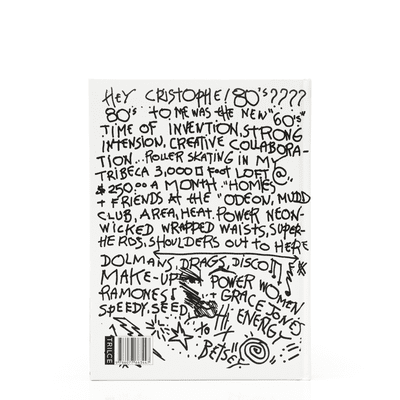 HEY CRISTOPHE! 80'S????
80'S TO ME WAS the NEW "60's"
TIME OF INVENTION, STRONG
INTENSION, CREATIVE COLLABORA-
TION... ROLLER SKATING IN MY
TRIBECA 3,000 □ FOOT LOFT @..
$250.00 A MONTH. "HOMIES"
+ FRIENDS AT the "ODEON, MUDD
CLUB, AREA, HEAT. POWER NEON-
WICKED WRAPPED WAISTS, SUPER-
HEROS, SHOULDERS OUT TO HERE
DOLMANS, DRAGS, DISCO
MAKE-UP POWER WOMEN
RAMONES! + GRACE JONES
SPEEDY, SEED HI ENERGY
to
BETSEY
TRILCE